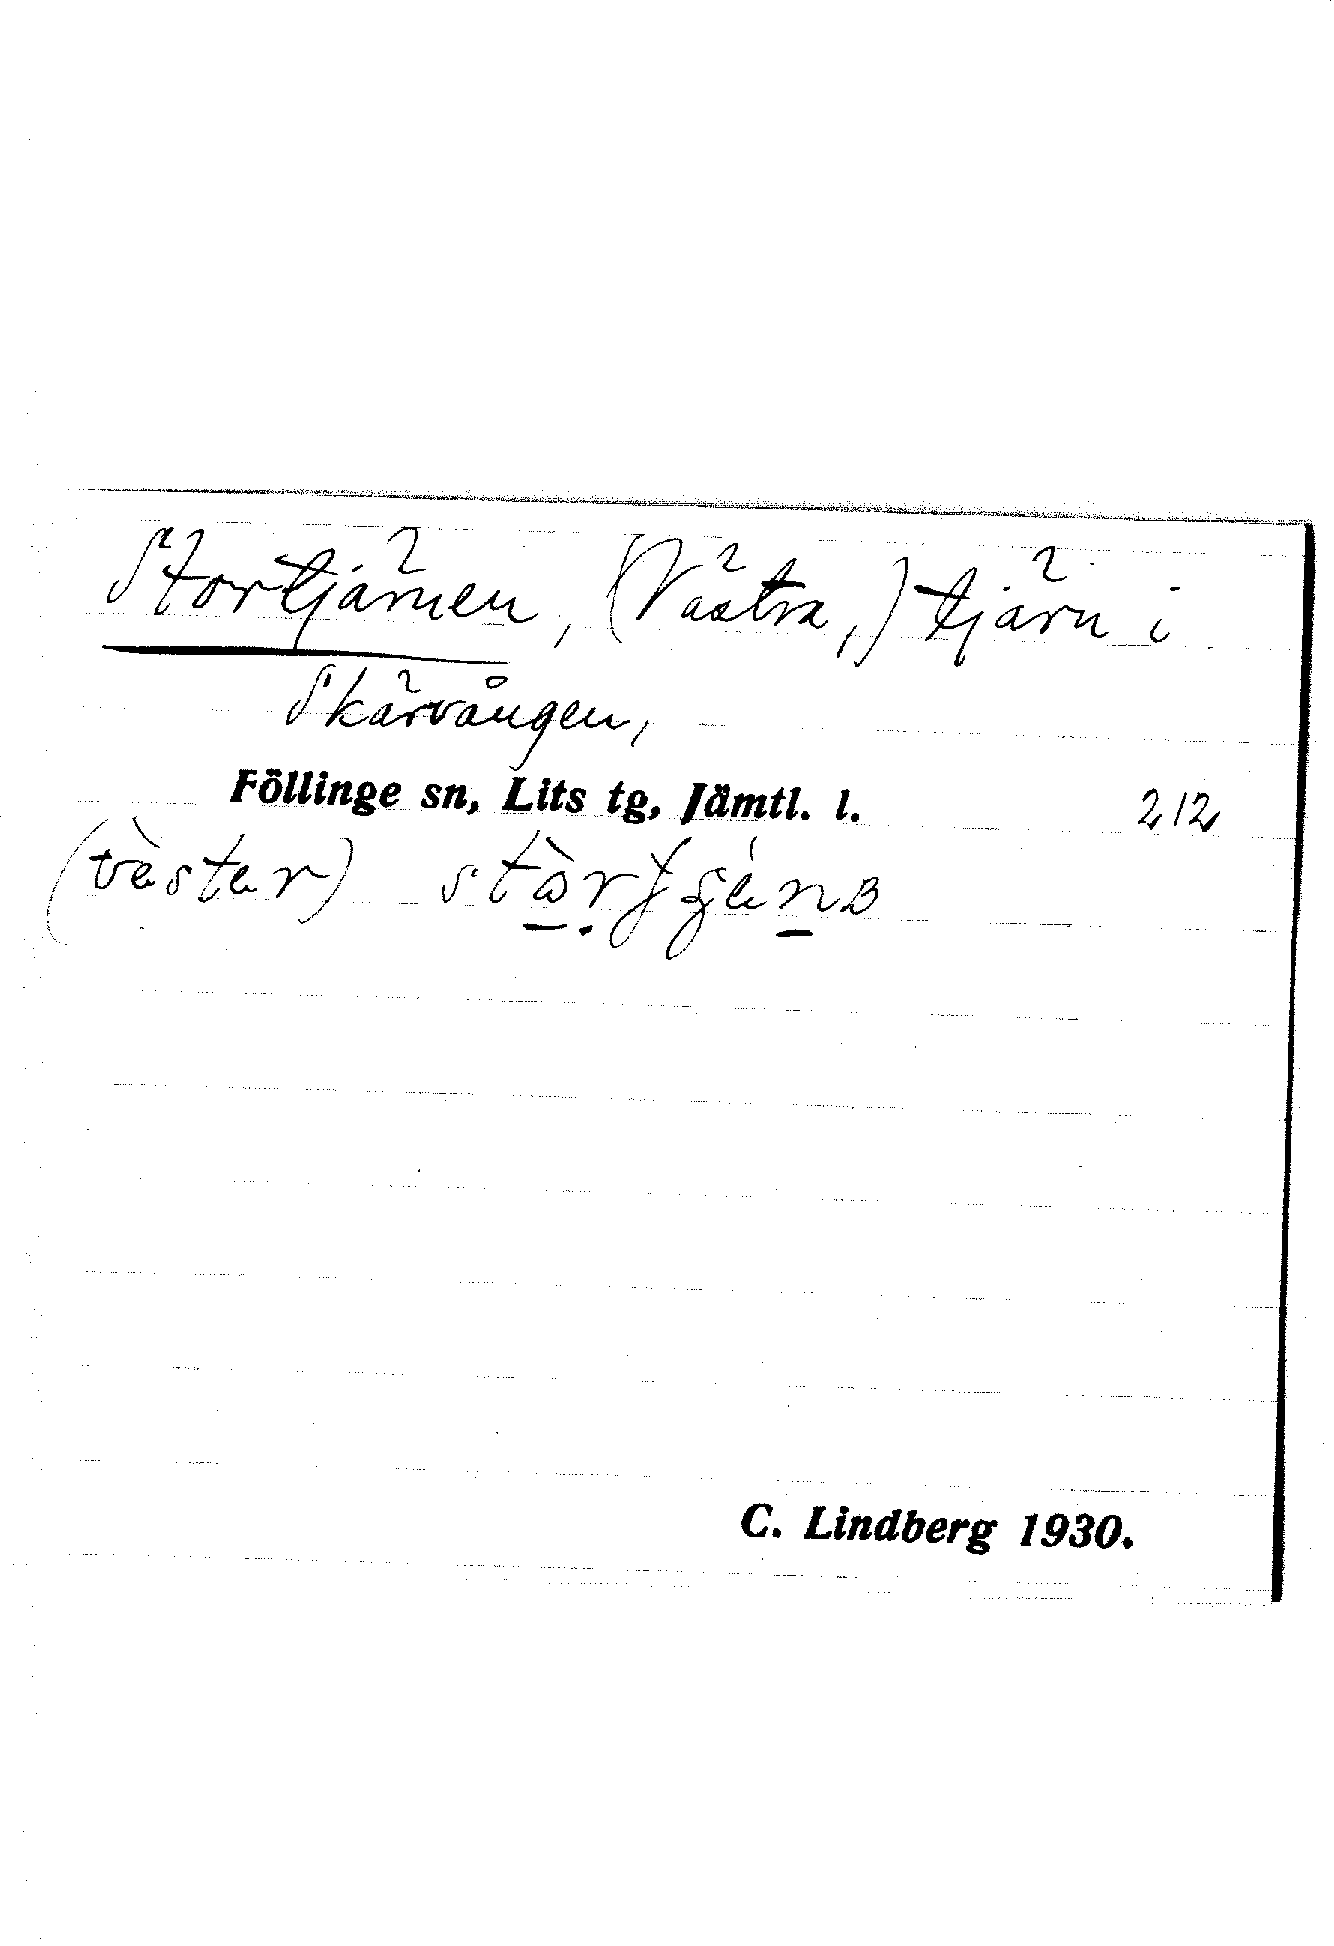 Stortjärnen, (Västra,) tjärn i
Skärvången,
Föllinge sn, Lits tg, Jämtl. l. 212
(vèster)
C. Lindberg 1930.